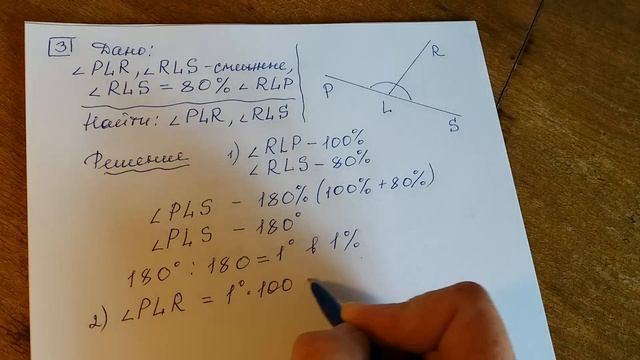 3 Дано:
∠PLR, ∠RLS-смежные,
∠RLS = 80% ∠RLP
Найти: ∠PLR, ∠RLS
R
P
L
S
Решение
1) ∠RLP - 100%
∠RLS - 80%
∠PLS - 180% (100% + 80%)
∠PLS - 180°
180° : 180 = 1° в 1%
2) ∠PLR = 1° · 100